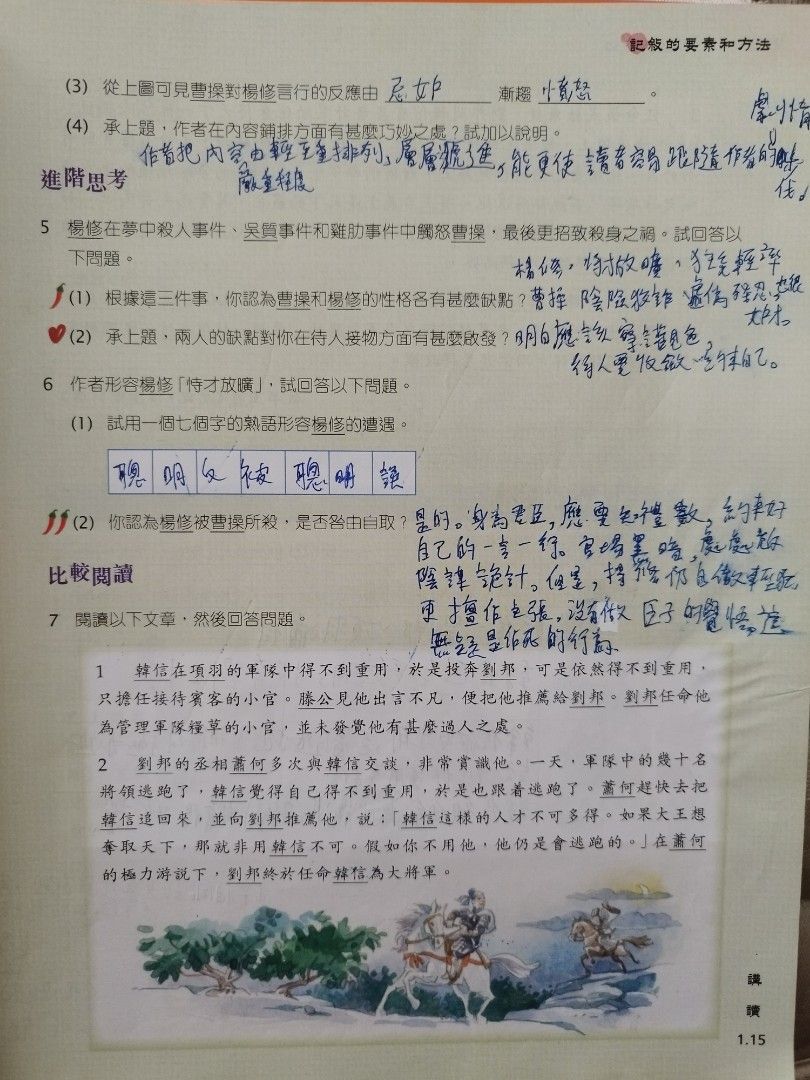 記敍的要素和方法
(3) 從上圖可見曹操對楊修言行的反應由 忌妒 漸趨 憤怒 。
(4) 承上題，作者在內容鋪排方面有甚麼巧妙之處？試加以說明。
作者把內容由輕至重排列，層層遞進，能更使讀者容易跟隨作者的
嚴重程度
進階思考
5 楊修在夢中殺人事件、吳質事件和雞肋事件中觸怒曹操，最後更招致殺身之禍。試回答以
下問題。
楊修，恃才放曠、狂妄輕率
(1) 根據這三件事，你認為曹操和楊修的性格各有甚麼缺點？曹操 陰險狡詐 虛偽殘忍
(2) 承上題，兩人的缺點對你在待人接物方面有甚麼啟發？明白應該察言觀色，
待人要收斂 自己。
6 作者形容楊修「恃才放曠」，試回答以下問題。
(1) 試用一個七個字的熟語形容楊修的遭遇。
聰明反被聰明誤
(2) 你認為楊修被曹操所殺，是否咎由自取？是的。身為君臣，應要知禮數，約束好
自己的一言一行。官場黑暗，處處設
陰謀詭計。但是，楊修仍自傲輕視
更擅作主張，沒有做臣子的覺悟，這
無疑是作死的行為
比較閱讀
7 閱讀以下文章，然後回答問題。
1 韓信在項羽的軍隊中得不到重用，於是投奔劉邦，可是依然得不到重用，
只擔任接待賓客的小官。滕公見他出言不凡，便把他推薦給劉邦。劉邦任命他
為管理軍隊糧草的小官，並未發覺他有甚麼過人之處。
2 劉邦的丞相蕭何多次與韓信交談，非常賞識他。一天，軍隊中的幾十名
將領逃跑了，韓信覺得自己得不到重用，於是也跟着逃跑了。蕭何趕快去把
韓信追回來，並向劉邦推薦他，說：「韓信這樣的人才不可多得。如果大王想
奪取天下，那就非用韓信不可。假如你不用他，他仍是會逃跑的。」在蕭何
的極力游說下，劉邦終於任命韓信為大將軍。
講
讀
1.15